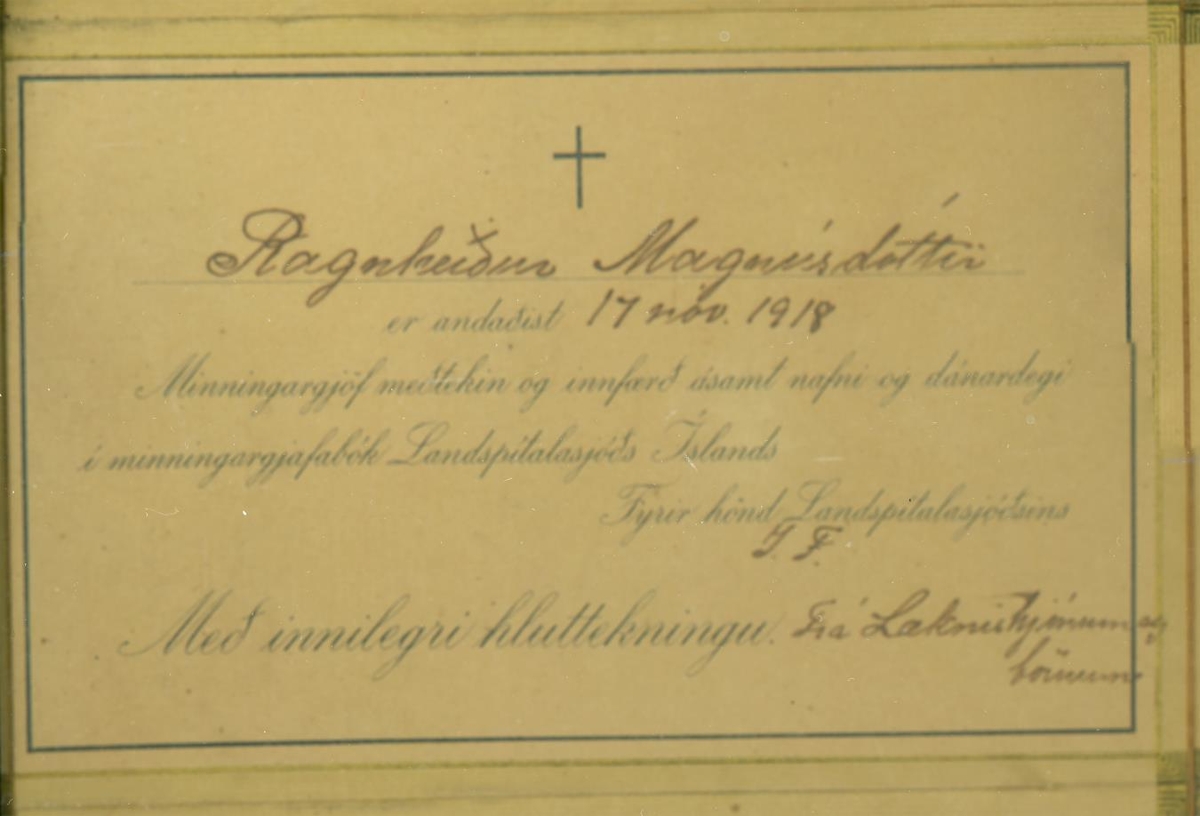 Ragnheiður Magnúsdóttir
er andaðist 17 nóv. 1918
Minningargjöf meðtekin og innfærð ásamt nafni og dánardegi
í minningargjafabók Landspítalasjóðs Íslands
Fyrir hönd Landspítalasjóðsins
I. F.
Með innilegri hluttekningu. Frá Læknishjónunum og
börnum